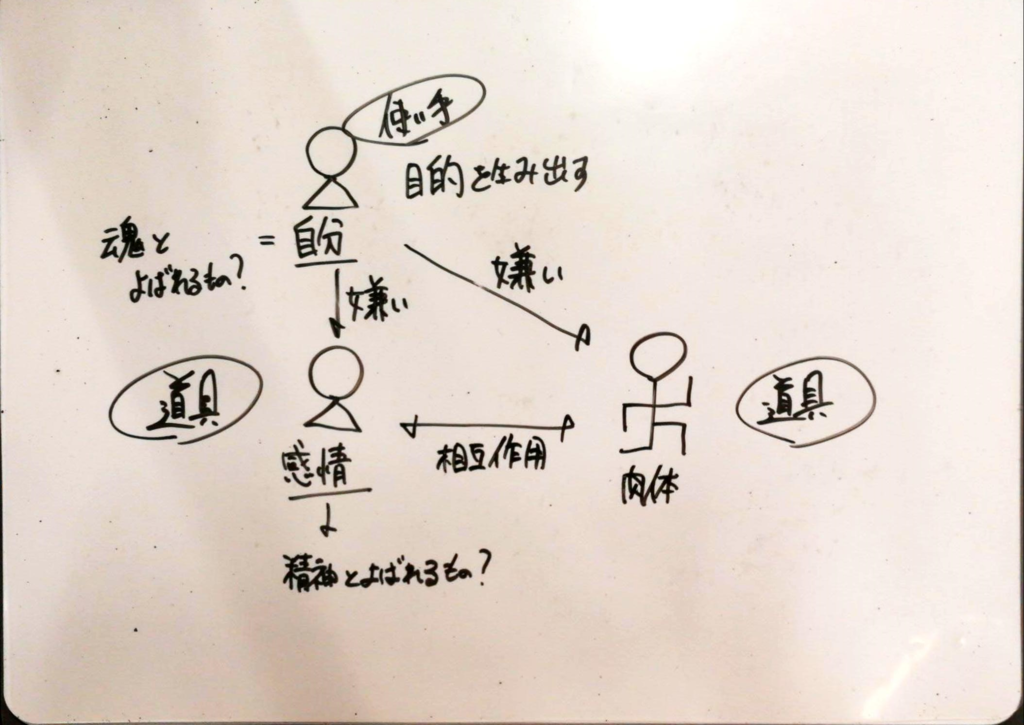 使い手
目的を生み出す
魂と
よばれるもの?
=
自分
嫌い
嫌い
道具
道具
相互作用
感情
肉体
精神とよばれるもの?